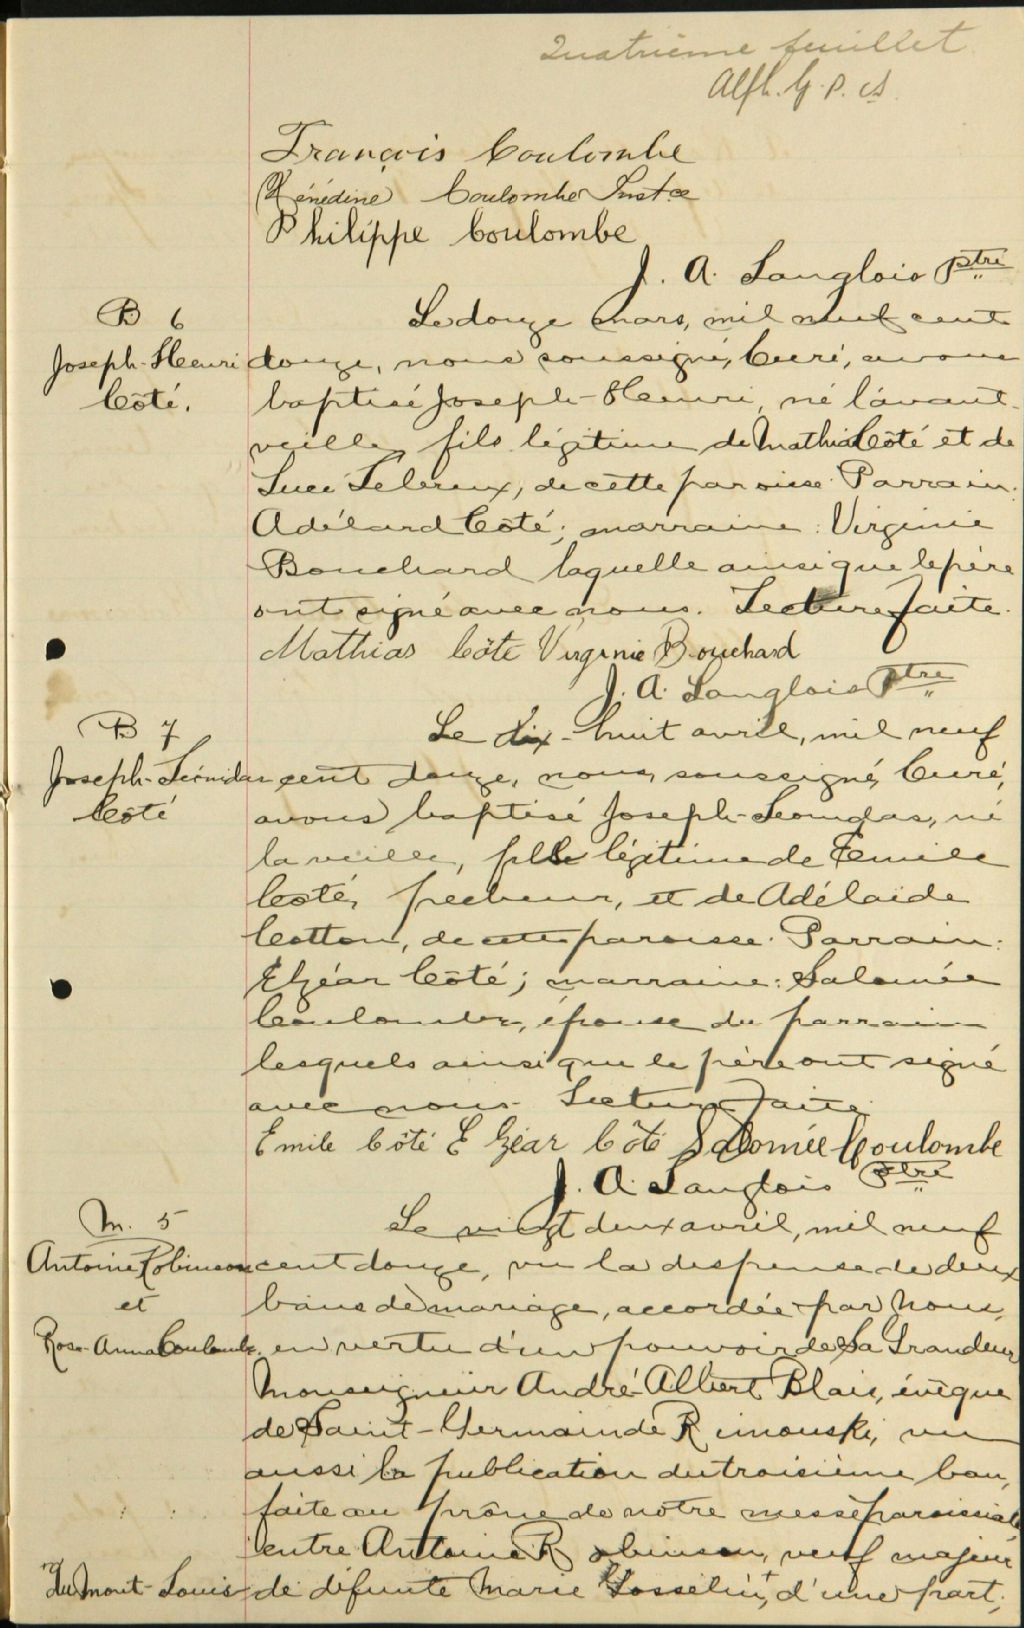 Quatrième feuillet
Alph. G. P. A.
François Coulombe
Bénédine Coulombe Inst.ce
Philippe Coulombe
J. A. Langlois Ptre
B 6
Joseph-Henri
Côté.
Le douze mars, mil neuf cent
douze, nous soussigné, Curé, avons
baptisé Joseph-Henri, né l'avant-
veille, fils légitime de Mathias Côté et de
Luce Lebreux, de cette paroisse. Parrain:
Adélard Côté; marraine: Virginie
Bouchard laquelle ainsi que le père
ont signé avec nous. Lecture faite.
Mathias Côte Virginie Bouchard
J. A. Langlois Ptre
B 7
Joseph-Léonidas
Côté
Le dix-huit avril, mil neuf
cent douze, nous, soussigné, Curé,
avons baptisé Joseph-Leonidas, né
la veille, fils légitime de Emile
Coté, pecheur, et de Adélaide
Cotton, de cette paroisse. Parrain:
Elzéar Côté; marraine: Salomée
Coulombe, épouse du parrain
lesquels ainsi que le père ont signé
avec nous. Lecture faite.
Emile Côté Elzéar Côté Salomée Coulombe
J. A. Langlois Ptre
M. 5
Antoine Robinson
et
Rose-Anna Coulombe
Le vingt deux avril, mil neuf
cent douze, vu la dispense de deux
bans de mariage, accordée par nous,
en vertu d'un pouvoir de Sa Grandeur
Monseigneur André-Albert Blais, évêque
de Saint-Germain de Rimouski, vu
aussi la publication du troisième ban,
faite au prône de notre messe paroissiale
entre Antoine Robinson, veuf majeur
de défunte Marie Gosselin,+ d'une part,
+du Mont-Louis